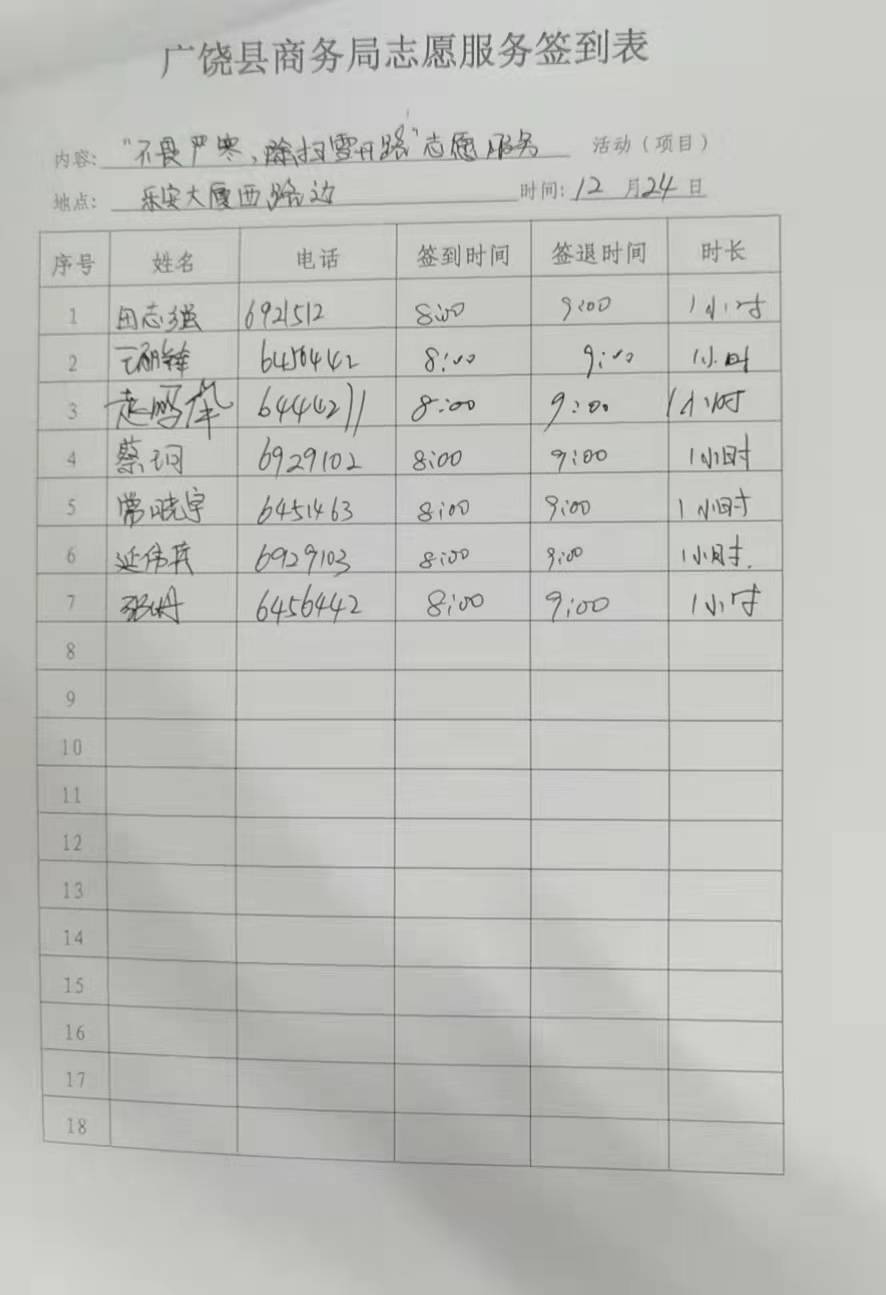 广饶县商务局志愿服务签到表
内容: "不畏严寒,除扫雪开路"志愿服务 活动(项目)
地点: 乐安大厦西路边 时间: 12 月 24 日
序号 姓名 电话 签到时间 签退时间 时长
1 田志强 6921512 8:00 9:00 1小时
2 6456442 8:00 9:00 1小时
3 6444211 8:00 9:00 1小时
4 蔡珂 6929102 8:00 9:00 1小时
5 常晓宇 6451463 8:00 9:00 1小时
6 延伟兵 6929103 8:00 9:00 1小时.
7 6456442 8:00 9:00 1小时
8
9
10
11
12
13
14
15
16
17
18